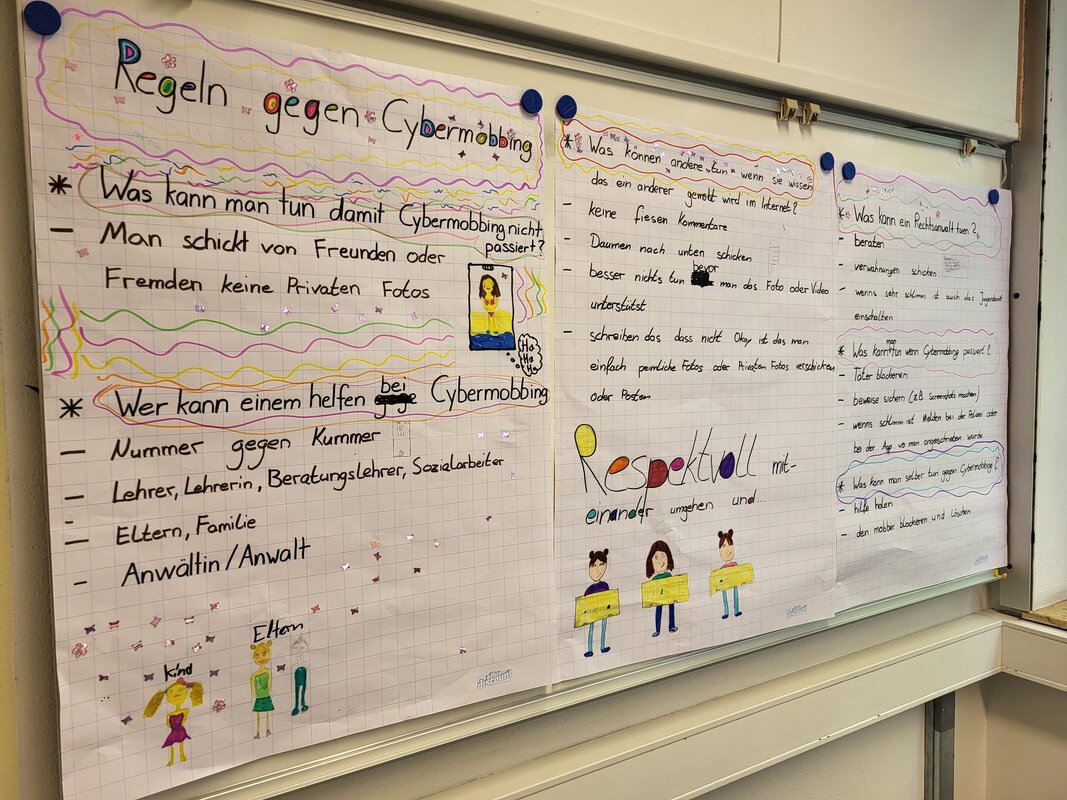 Regeln gegen Cybermobbing
* Was kann man tun damit Cybermobbing nicht
passiert?
— Man schickt von Freunden oder
Fremden keine Privaten Fotos
Ha
Ha
Ha
* Wer kann einem helfen bei Cybermobbing
— Nummer gegen Kummer
— Lehrer, Lehrerin, Beratungslehrer, Sozialarbeiter
— Eltern, Familie
— Anwältin/Anwalt
Kind
Eltern
discount
* Was können andere tun wenn sie wissen
das ein anderer gemobt wird im Internet?
- keine fiesen Kommentare
- Daumen nach unten schicken
- besser nichts tun bevor man das Foto oder Video
unterstützt
- schreiben das dass nicht Okay ist das man
einfach peinliche Fotos oder Privaten Fotos verschicken
oder Posten
Respektvoll mit-
einander umgehen und...
discount
* Was kann ein Rechtsanwalt tuen?
- beraten
- verwahnungen schicken
- wenns sehr schlimm ist auch das Jugendamt
einschalten
* Was kann man tun wenn Cybermobbing passiert?
- Täter blockieren
- beweise sichern (z.B. Screenshots machen)
- wenns schlimm ist Melden bei der Polizei oder
bei der App wo man angeschrieben wurde
* Was kann man selber tun gegen Cybermobbing?
- hilfe holen
- den mobber blockieren und löschen
discount